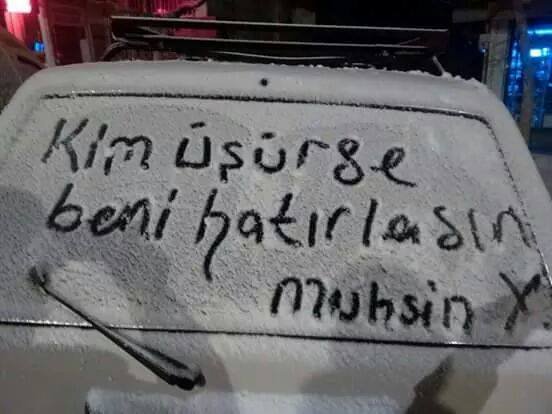 Kim üşürse
beni hatırlasın
muhsin Y